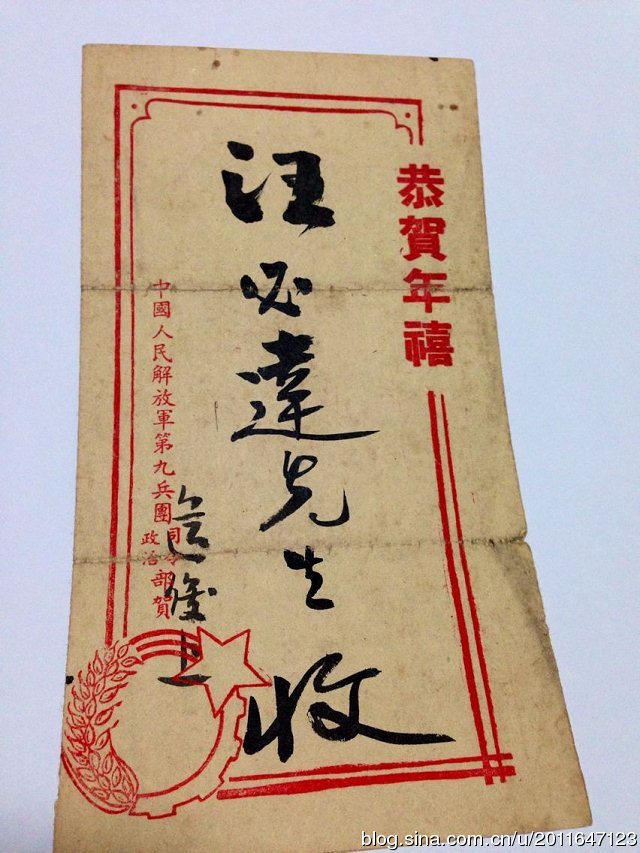 恭賀年禧
汪必達先生收
中國人民解放軍第九兵團司令政治部賀
上
blog.sina.com.cn/u/2011647123